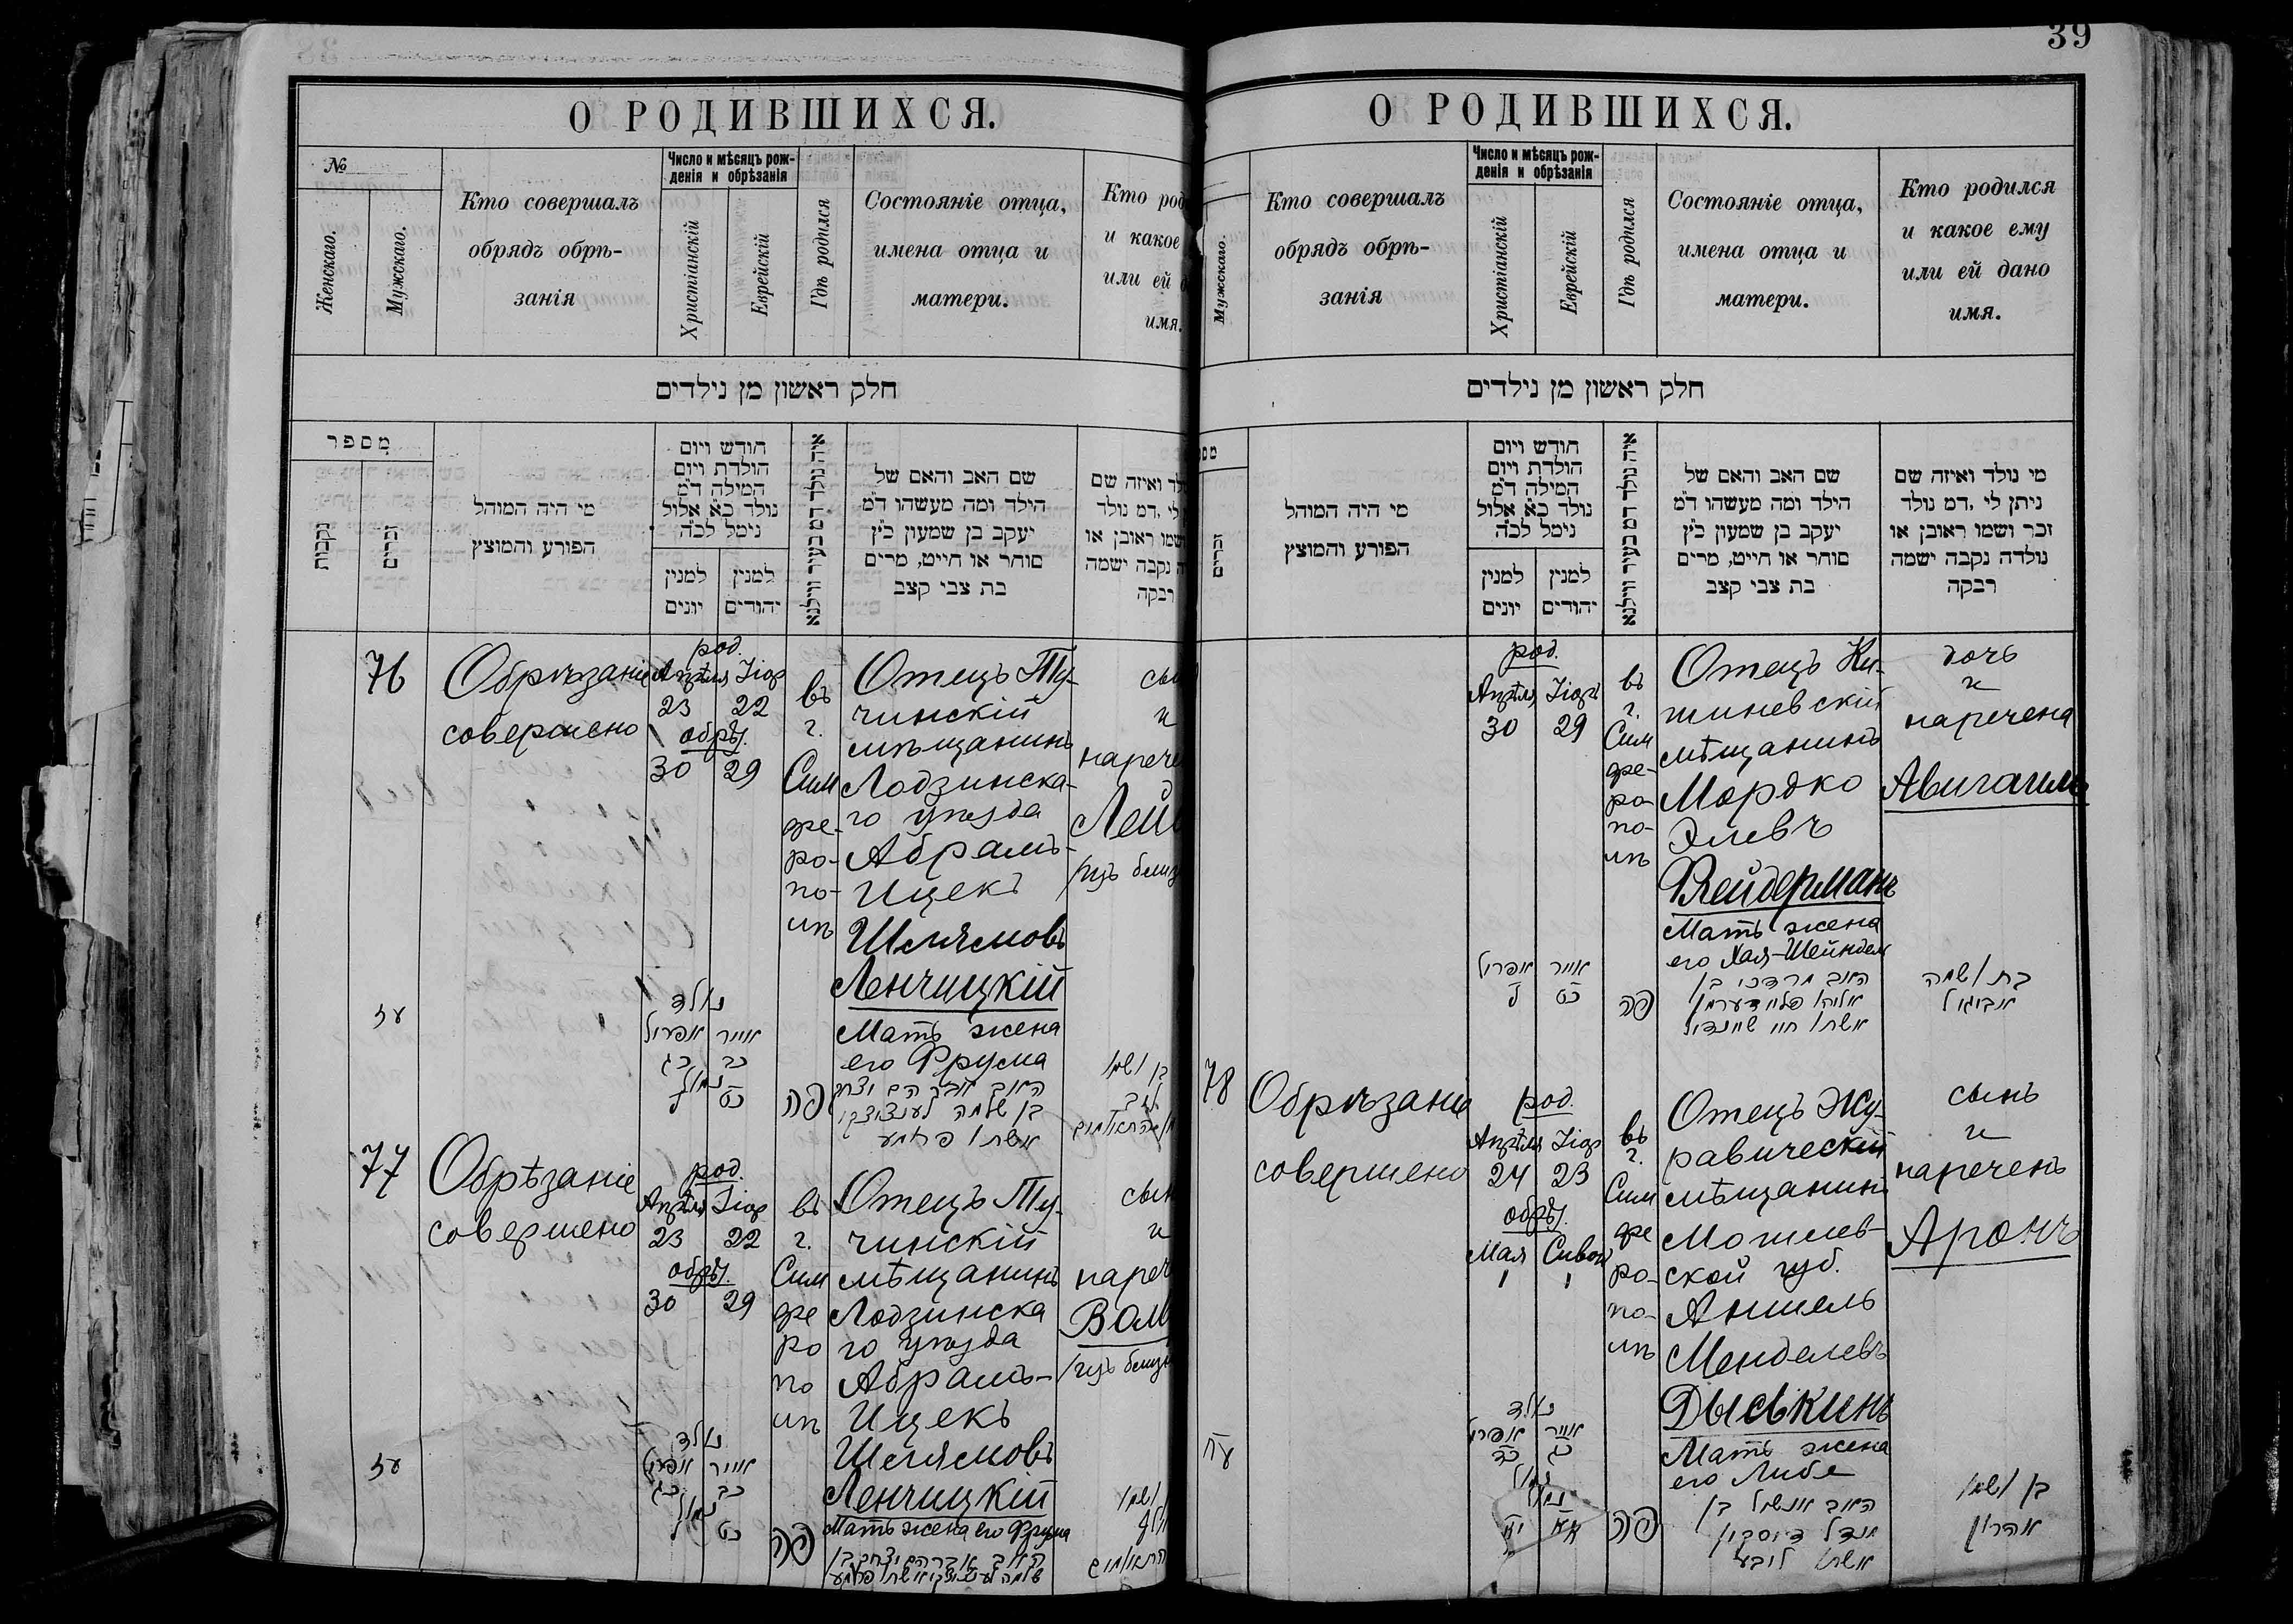 О РОДИВШИХСЯ.
№
Женскаго.
Мужскаго.
Кто совершалъ
обрядъ обрѣ-
занія
Число и мѣсяцъ рож-
денія и обрѣзанія
Христіанскій
Еврейскій
Гдѣ родился
Состояніе отца,
имена отца и
матери.
Кто род
и какое
или ей д
имя.
חלק ראשון מן נילדים
מספר
נקבות
זכרים
מי היה המוהל
הפורע והמוצץ
חודש ויום
הולדת ויום
המילה ד״מ
נולד כ״א אלול
נימל לכ״ה
למנין
יונים
למנין
יהודים
איה נולד דמ בעיר ווילנא
שם האב והאם של
הילד ומה מעשהו ד״מ
יעקב בן שמעון כ״ץ
סוחר או חייט, מרים
בת צבי קצב
לד ואיזה שם
לי ,דמ נולד
שמו ראובן או
ה נקבה ישמה
רבקה
76
Обрѣзаніе
совершено
род.
Апрѣля Ііор
23 22
обрѣз.
30 29
въ
г.
Сим
фе-
ро-
по-
лѣ
Отецъ Ту-
чинскій
мѣщанинъ
Лодзинска-
го уѣзда
Абрамъ-
Ицекъ
Шлямовъ
Ленчицкій
Мать жена
его Фрума
сы
и
нарече
Лей
/изъ близ
נולד
אייר אפריל
כב כג
נמול
כט ל
פה
האב אברהם יצחק
בן שלמה לענציצקי
אשתו פרומע
בן ושמו
ליב
77
Обрѣзаніе
совершено
род.
Апрѣля Ііор
23 22
обрѣз.
30 29
въ
г.
Сим
фе
ро
по
лѣ
Отецъ Ту-
чинскій
мѣщанинъ
Лодзинска
го уѣзда
Абрамъ-
Ицекъ
Шлямовъ
Ленчицкій
Мать жена его Фрума
сын
и
нареч
Вол
/изъ близн
נולד
אייר אפריל
כב כג
נמול
כט ל
פה
האב אברהם יצחק בן
שלמה לענציצקי אשתו פרומע
ושמו
39
О РОДИВШИХСЯ.
Мужскаго.
Кто совершалъ
обрядъ обрѣ-
занія
Число и мѣсяцъ рож-
денія и обрѣзанія
Христіанскій
Еврейскій
Гдѣ родился
Состояніе отца,
имена отца и
матери.
Кто родился
и какое ему
или ей дано
имя.
חלק ראשון מן נילדים
מספ
זכרים
מי היה המוהל
הפורע והמוצץ
חודש ויום
הולדת ויום
המילה ד״מ
נולד כ״א אלול
נימל לכ״ה
למנין
יונים
למנין
יהודים
איה נולד דמ בעיר ווילנא
שם האב והאם של
הילד ומה מעשהו ד״מ
יעקב בן שמעון כ״ץ
סוחר או חייט, מרים
בת צבי קצב
מי נולד ואיזה שם
ניתן לי ,דמ נולד
זכר ושמו ראובן או
נולדה נקבה ישמה
רבקה
род.
Апрѣля Іiоръ
30 29
въ
г.
Сим
фе-
ро-
по-
лѣ
Отецъ Ки-
шиневскій
мѣщанинъ
Мордко
Элевъ
Флейдерманъ
Мать жена
его Хая-Шейндел
дочь
и
наречена
Авигаиль
אייר אפריל
כט ל
פה
האב מרדכי בן
אליהו פליידערמן
אשתו חיי שיינדיל
בת ושמה
אביגיל
78
Обрѣзаніе
совершено
род.
Апрѣля Ііор
24 23
обрѣз.
Мая Сивон
1 1
въ
г.
Сим
фе
ро-
по-
лѣ
Отецъ Жу-
равическій
мѣщанинъ
Могилев-
ской губ.
Аншель
Менделевъ
Дыськинъ
Мать жена
его Либе
сынъ
и
нареченъ
Аронъ
עח
נולד
אייר אפריל
כג כד
נמול
פה
האב אנשיל בן
מנדל דיסקין
אשתו ליבע
בן ושמו
אהרון